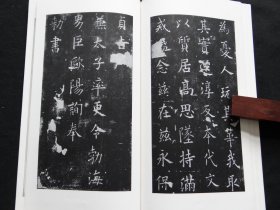 為憂人玩其華我取
其實還淳反本代文
以質居高思墜持滿
戒溢念茲在茲永保
貞吉
兼太子率更令勃海
男臣歐陽詢奉
勑書